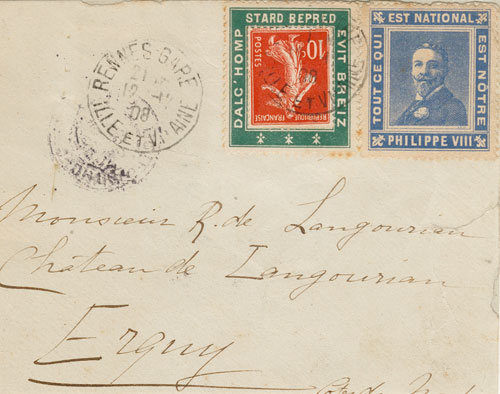 RENNES-GARE
08
ILLE-ET-VILAINE
DALC'HOMP
STARD BEPRED
EVIT BREIZ
REPUBLIQUE FRANÇAISE
POSTES
10c
TOUT CE QUI
EST NATIONAL
EST NÔTRE
PHILIPPE VIII
Monsieur R. de Langourian
Château de Langourian
Erquy